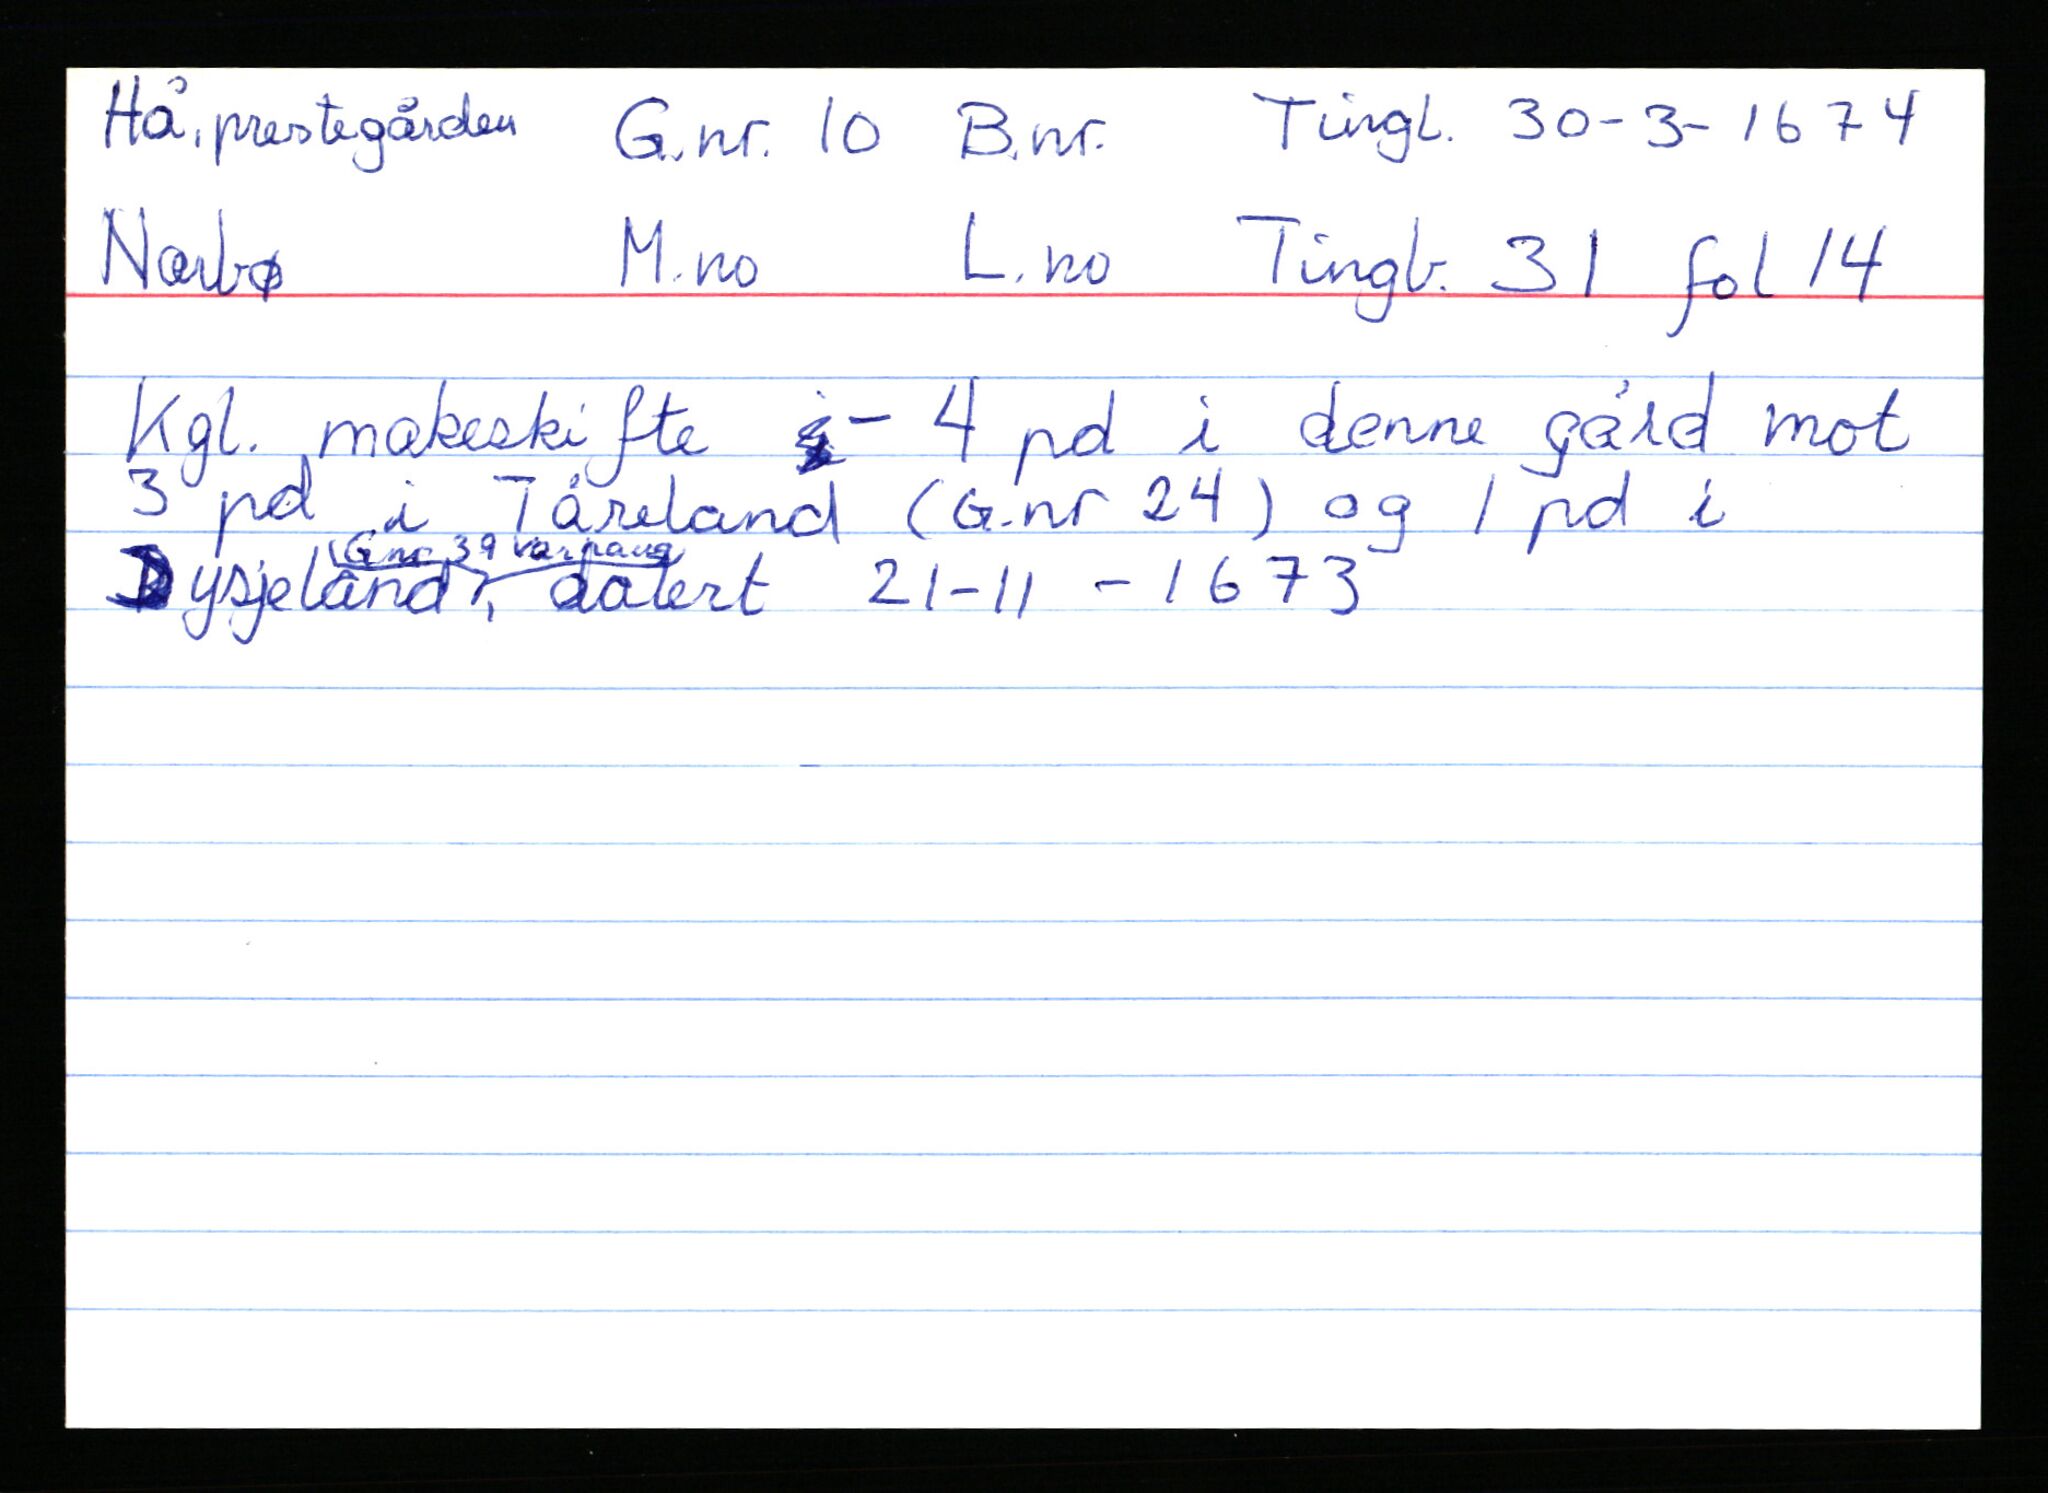 Hå, prestegården G.nr. 10 B.nr. Tingl. 30-3-1674
Nærbø M.no L.no Tingb. 31 fol 14
Kgl. makeskifte - 4 pd i denne gård mot
3 pd i Tåreland (G.nr 24) og 1 pd i
(G.nr 39 Varhaug)
Dysjeland, datert 21-11-1673